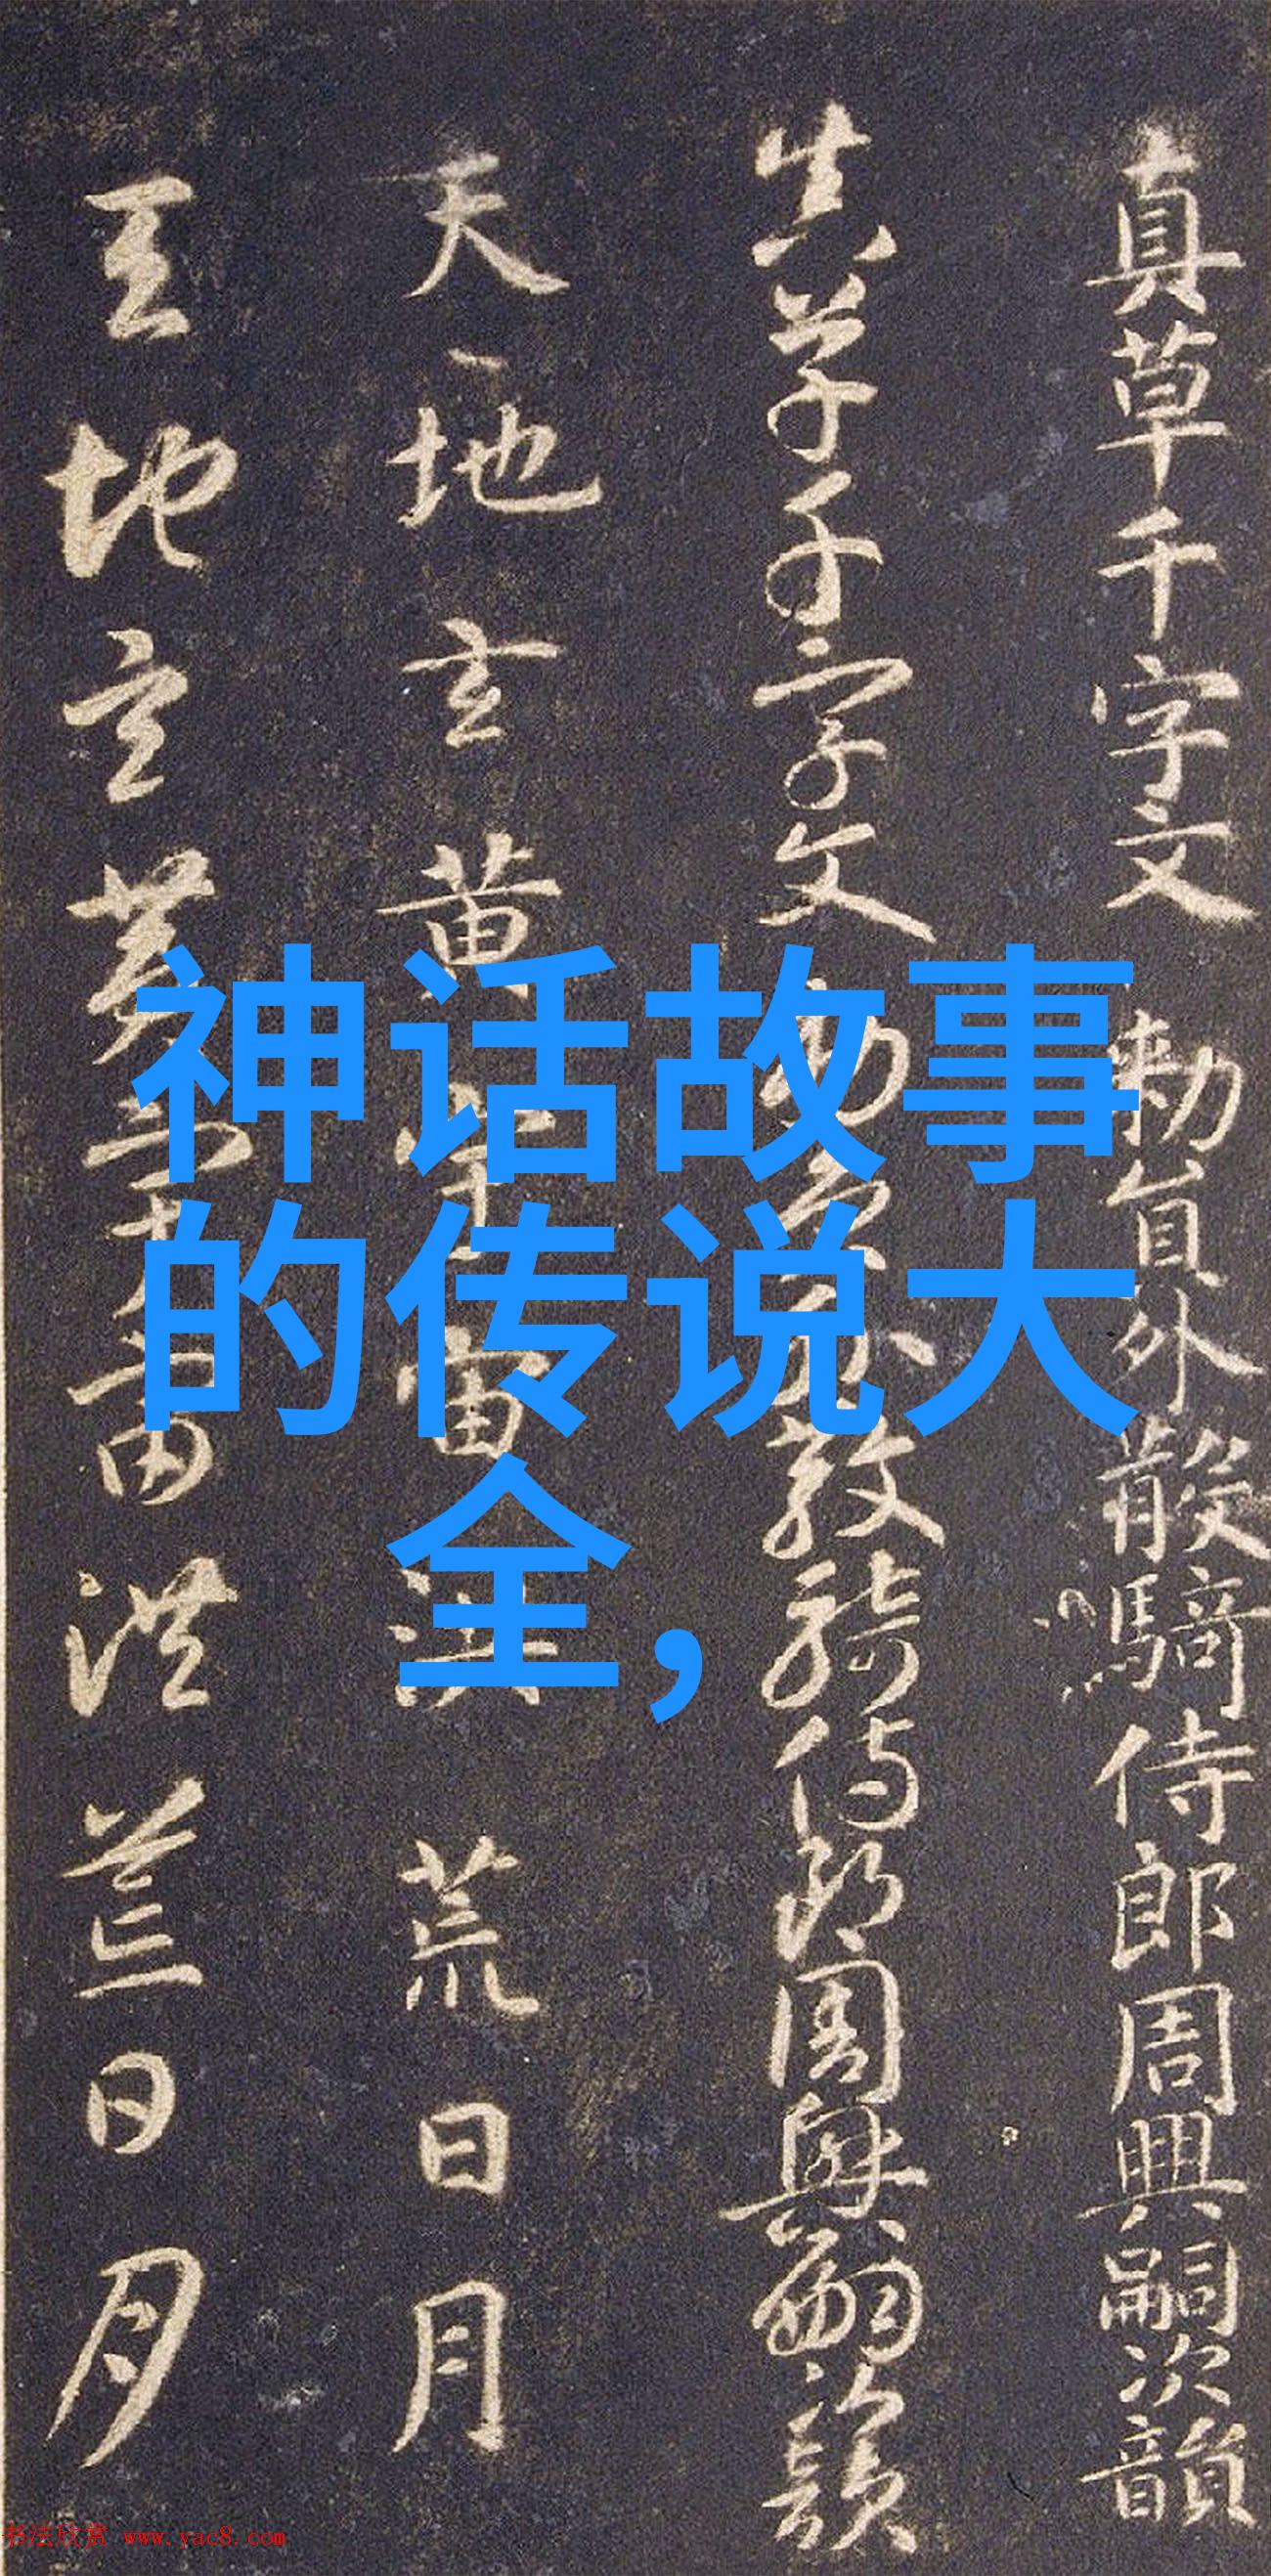 真草千字文 勅員外散騎侍郎周興嗣次韻
真草千字文 勅員外散騎侍郎周興嗣次韻
天地玄黄宇宙洪荒日月
天地玄黄宇宙洪荒日月
神话故事
的传说大
全，
书法欣赏 www.yac8.com